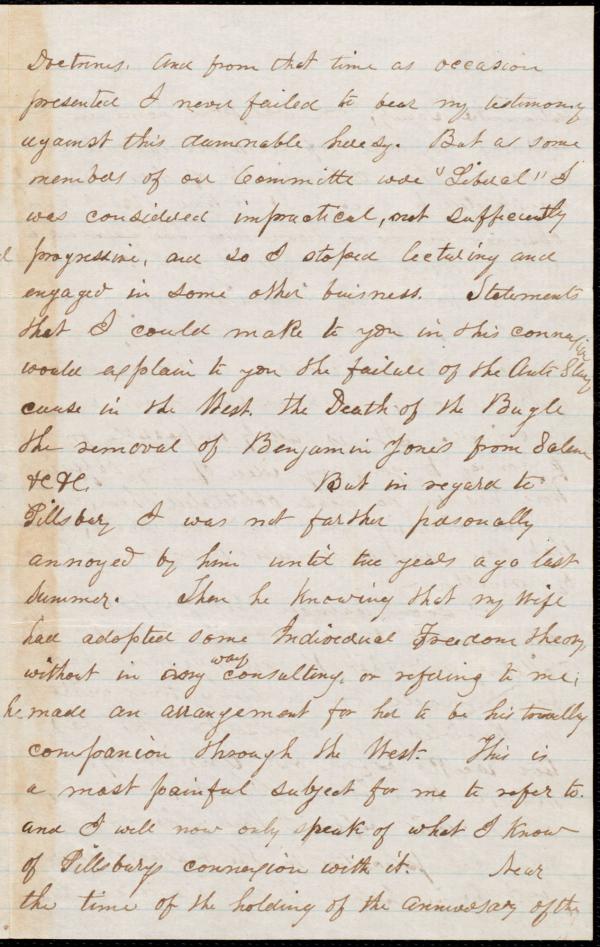 Doctrines. And from that time as occasion
presented I never failed to bear my testimony
against this damnable heresy. But as some
members of our Committe were "Liberal" I
was considered impractical, not sufficiently
progressive, and so I stoped lecturing and
engaged in some other buisness. Statements
that I could make to you in this connexion
would explain to you the failure of the Anti Slavy
cause in the West. the Death of the Bugle
the removal of Benjamin Jones from Salem
&c &c. But in regard to
Pillsbury I was not farther personally
annoyed by him until two years ago last
Summer. Then he knowing that my wife
had adopted some Individual Freedom theory
without in any way consulting, or refering to me,
he made an arrangement for her to be his travelly
companion through the West. This is
a most painful subject for me to refer to.
and I will now only speak of what I know
of Pillsburys connexion with it. Near
the time of the holding of the anniversary of the